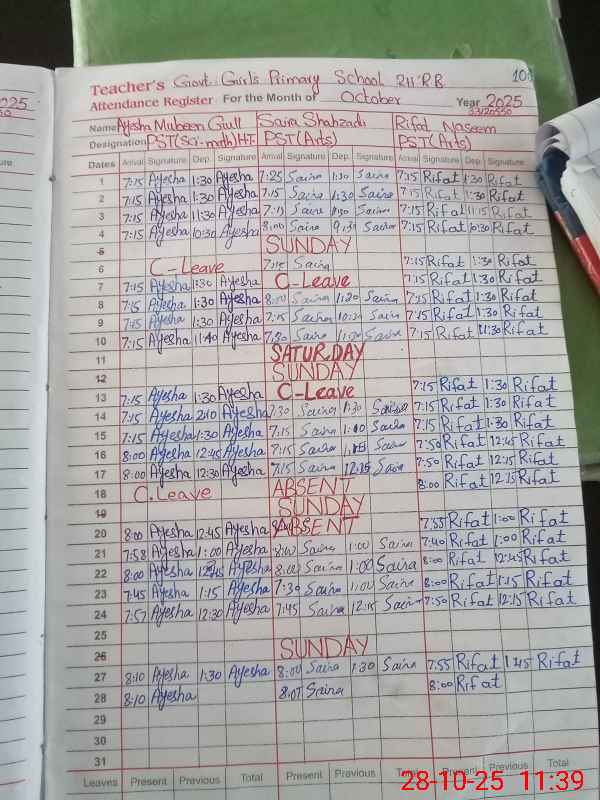 Teacher's Govt. Girls Primary School 2H R.B 10
Attendance Register For the Month of October Year 2025
025
Name Ayesha Mubeen Gull Saira Shahzadi Rifat Naseem
Designation PST(Sci-math)HT PST(Arts) PST(Arts)
Dates Arrival Signature Dep. Signature Arrival Signature Dep. Signature Arrival Signature Dep. Signature
1 7:15 Ayesha 1:30 Ayesha 7:25 Saira 1:30 Saira 7:15 Rifat 1:30 Rifat
2 7:15 Ayesha 1:30 Ayesha 7:15 Saira 1:30 Saira 7:15 Rifat 1:30 Rifat
3 7:15 Ayesha 11:30 Ayesha Saira Saira 7:15 Rifat 11:15 Rifat
4 7:15 Ayesha 10:30 Ayesha 8:00 Saira 9:30 Saira 7:15 Rifat 10:30 Rifat
5 SUNDAY
6 C-Leave 7:15 Saira 7:15 Rifat 1:30 Rifat
7 7:15 Ayesha 1:30 Ayesha C-Leave 7:15 Rifat 1:30 Rifat
8 7:15 Ayesha 1:30 Ayesha 8:00 Saira 1:20 Saira 7:15 Rifat 1:30 Rifat
9 7:15 Ayesha 1:30 Ayesha 7:15 Saira 10:30 Saira 7:15 Rifat 1:30 Rifat
10 7:15 Ayesha 11:40 Ayesha 7:20 Saira 11:30 Saira 7:15 Rifat 11:30 Rifat
11 SATURDAY
12 SUNDAY
13 7:15 Ayesha 1:30 Ayesha C-Leave 7:15 Rifat 1:30 Rifat
14 7:15 Ayesha 2:10 Ayesha 7:30 Saira 1:30 Saira 7:15 Rifat 1:30 Rifat
15 7:15 Ayesha 1:30 Ayesha 7:15 Saira 1:10 Saira 7:15 Rifat 1:30 Rifat
16 8:00 Ayesha 12:45 Ayesha 7:15 Saira Saira 7:50 Rifat 12:45 Rifat
17 8:00 Ayesha 12:30 Ayesha 7:15 Saira 12:15 Saira 7:50 Rifat 12:15 Rifat
18 C.Leave ABSENT 8:00 Rifat 12:15 Rifat
19 SUNDAY
20 8:00 Ayesha 12:45 Ayesha ABSENT 7:55 Rifat 1:00 Rifat
21 7:58 Ayesha 1:00 Ayesha 8:00 Saira 1:00 Saira 7:40 Rifat 1:00 Rifat
22 8:00 Ayesha 12:45 Ayesha 8:00 Saira 1:00 Saira 8:00 Rifat 12:45 Rifat
23 7:45 Ayesha 1:15 Ayesha 7:30 Saira 1:00 Saira 8:00 Rifat 1:15 Rifat
24 7:57 Ayesha 12:30 Ayesha 7:45 Saira 12:15 Saira 7:50 Rifat 12:15 Rifat
25
26 SUNDAY
27 8:10 Ayesha 1:30 Ayesha 8:00 Saira 1:30 Saira 7:55 Rifat 1:45 Rifat
28 8:10 Ayesha 8:07 Saira 8:00 Rifat
29
30
31
Leaves Present Previous Total Present Previous Total Present Previous Total
28-10-25 11:39